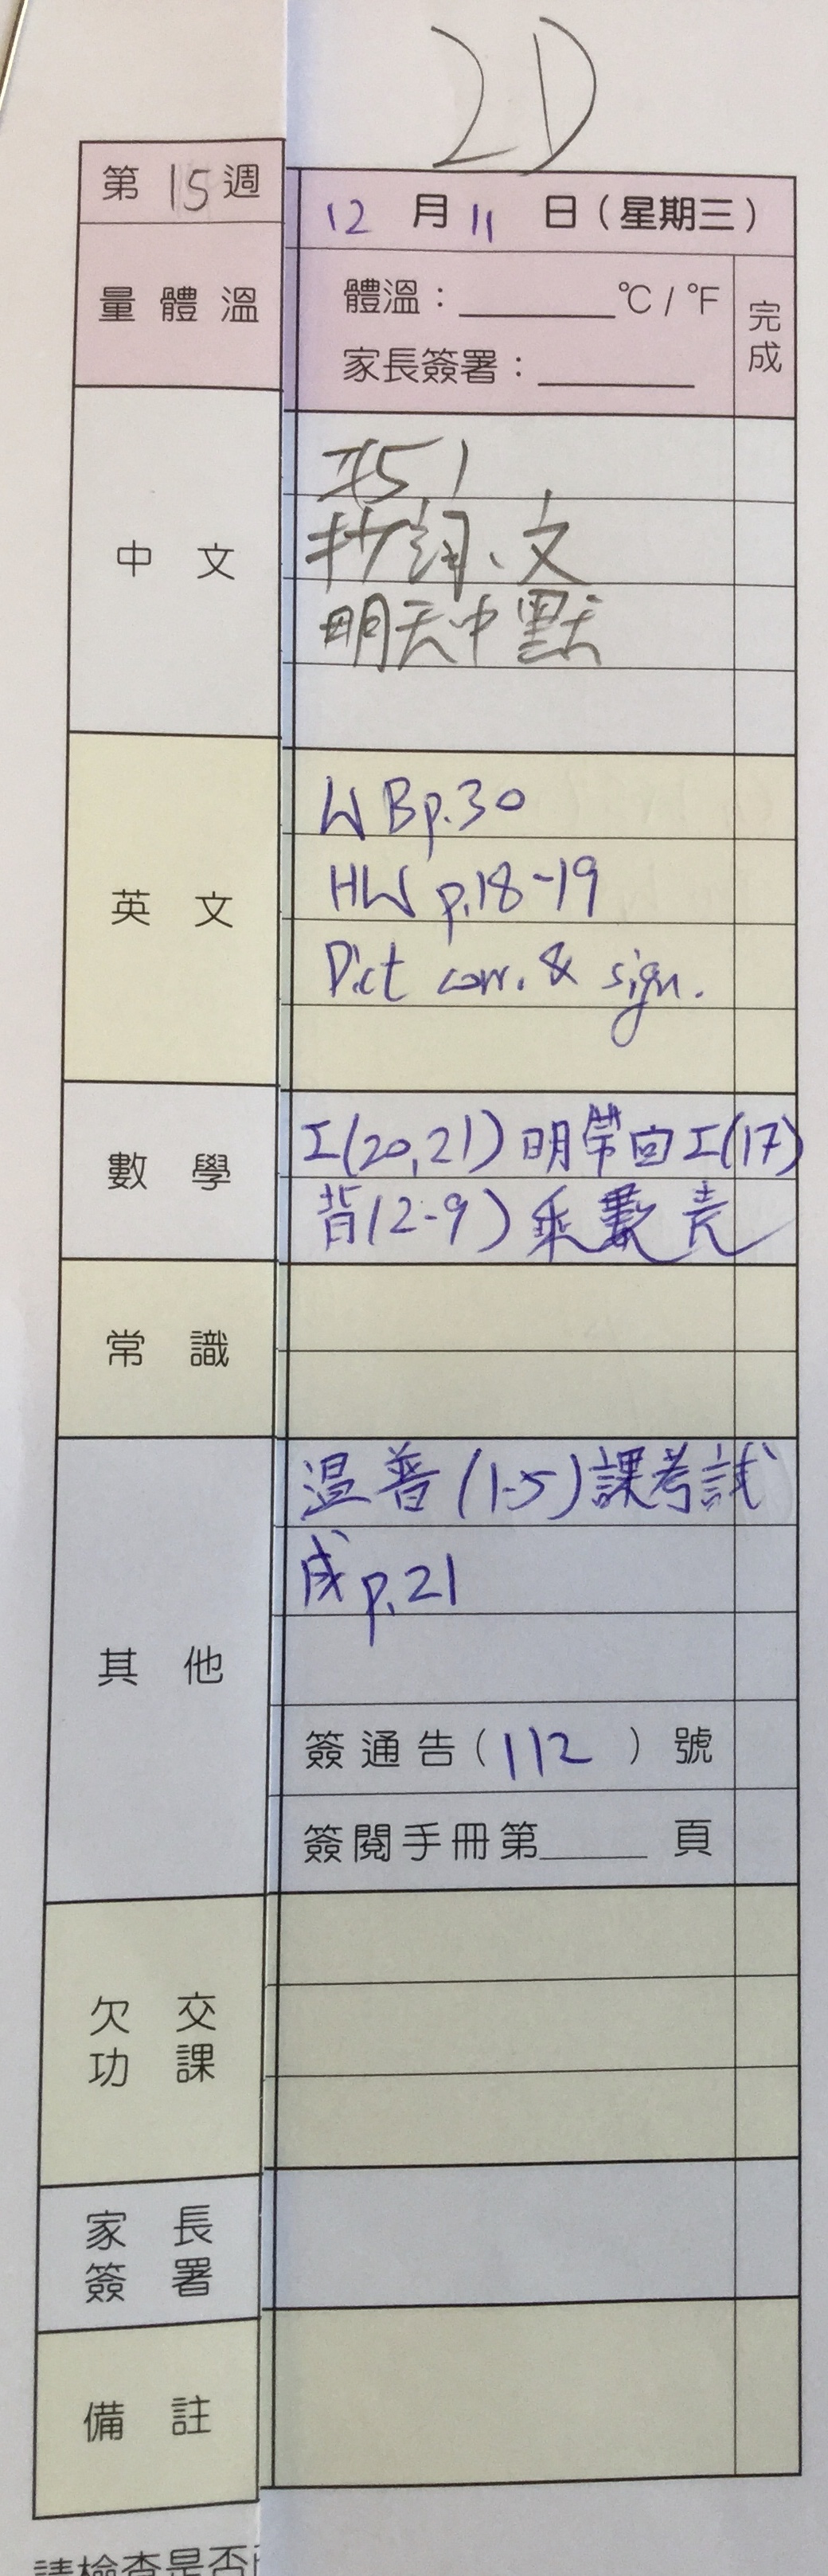 2D
第 15 週
12 月 11 日（星期三）
量體溫
體溫：______℃ / ℉
家長簽署：______
完成
中文
抄詞、文
明天中默
英文
WB p.30
HW p.18-19
Dict corr. & sign.
數學
工(20,21) 明帶回工(17)
背(2-9)乘數表
常識
其他
温普(1-5)課考試
成 p.21
簽通告(112)號
簽閱手冊第______頁
欠交
功課
家長
簽署
備註
請檢查是否